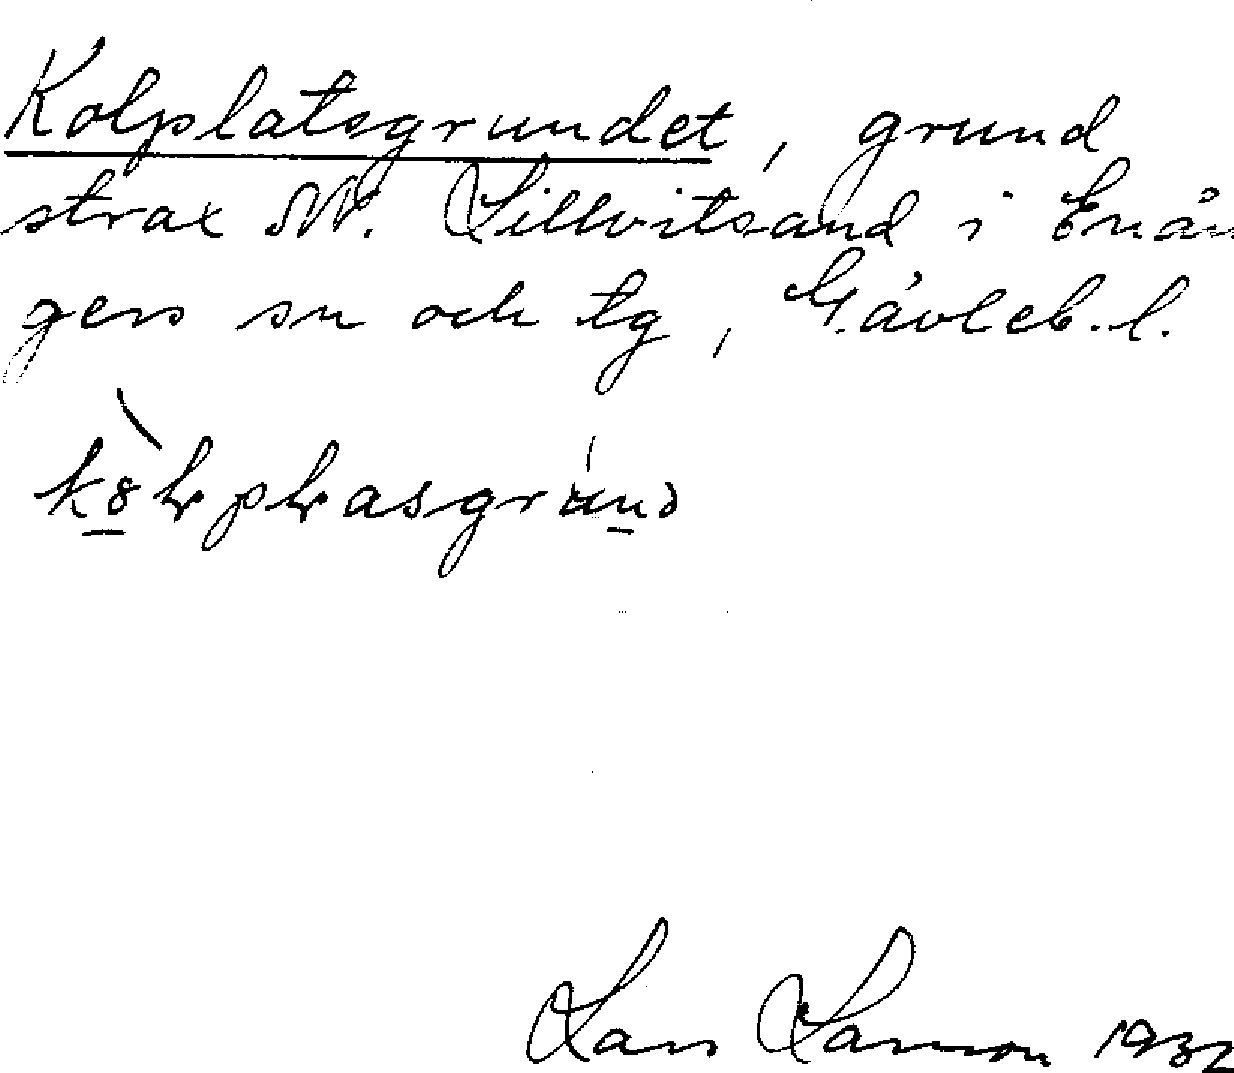 Kolplatsgrundet, grund
strax NV. Lillvitsand i Enån
gers sn och tg, Gävleb. l.
Lars Larsson 1932